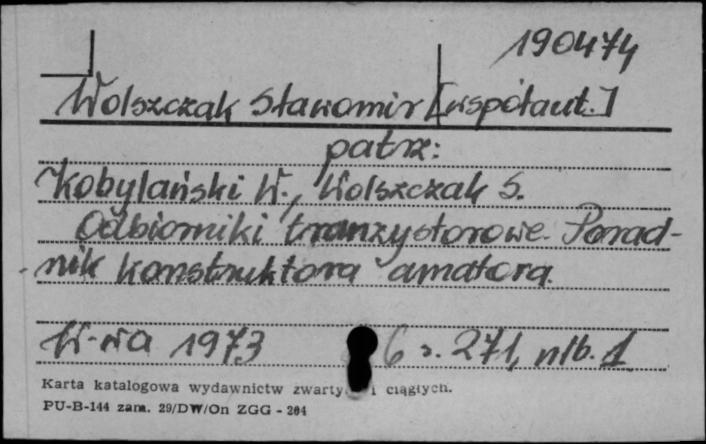 190474
Wolszczak Sławomir [współaut.]
patrz:
Kobylański W., Wolszczak S.
Odbiorniki tranzystorowe. Porad-
nik konstruktora amatora.
W-wa 1973 6 s. 271, nlb. 1
Karta katalogowa wydawnictw zwarty i ciągłych.
PU-B-144 zam. 29/DW/On ZGG - 204